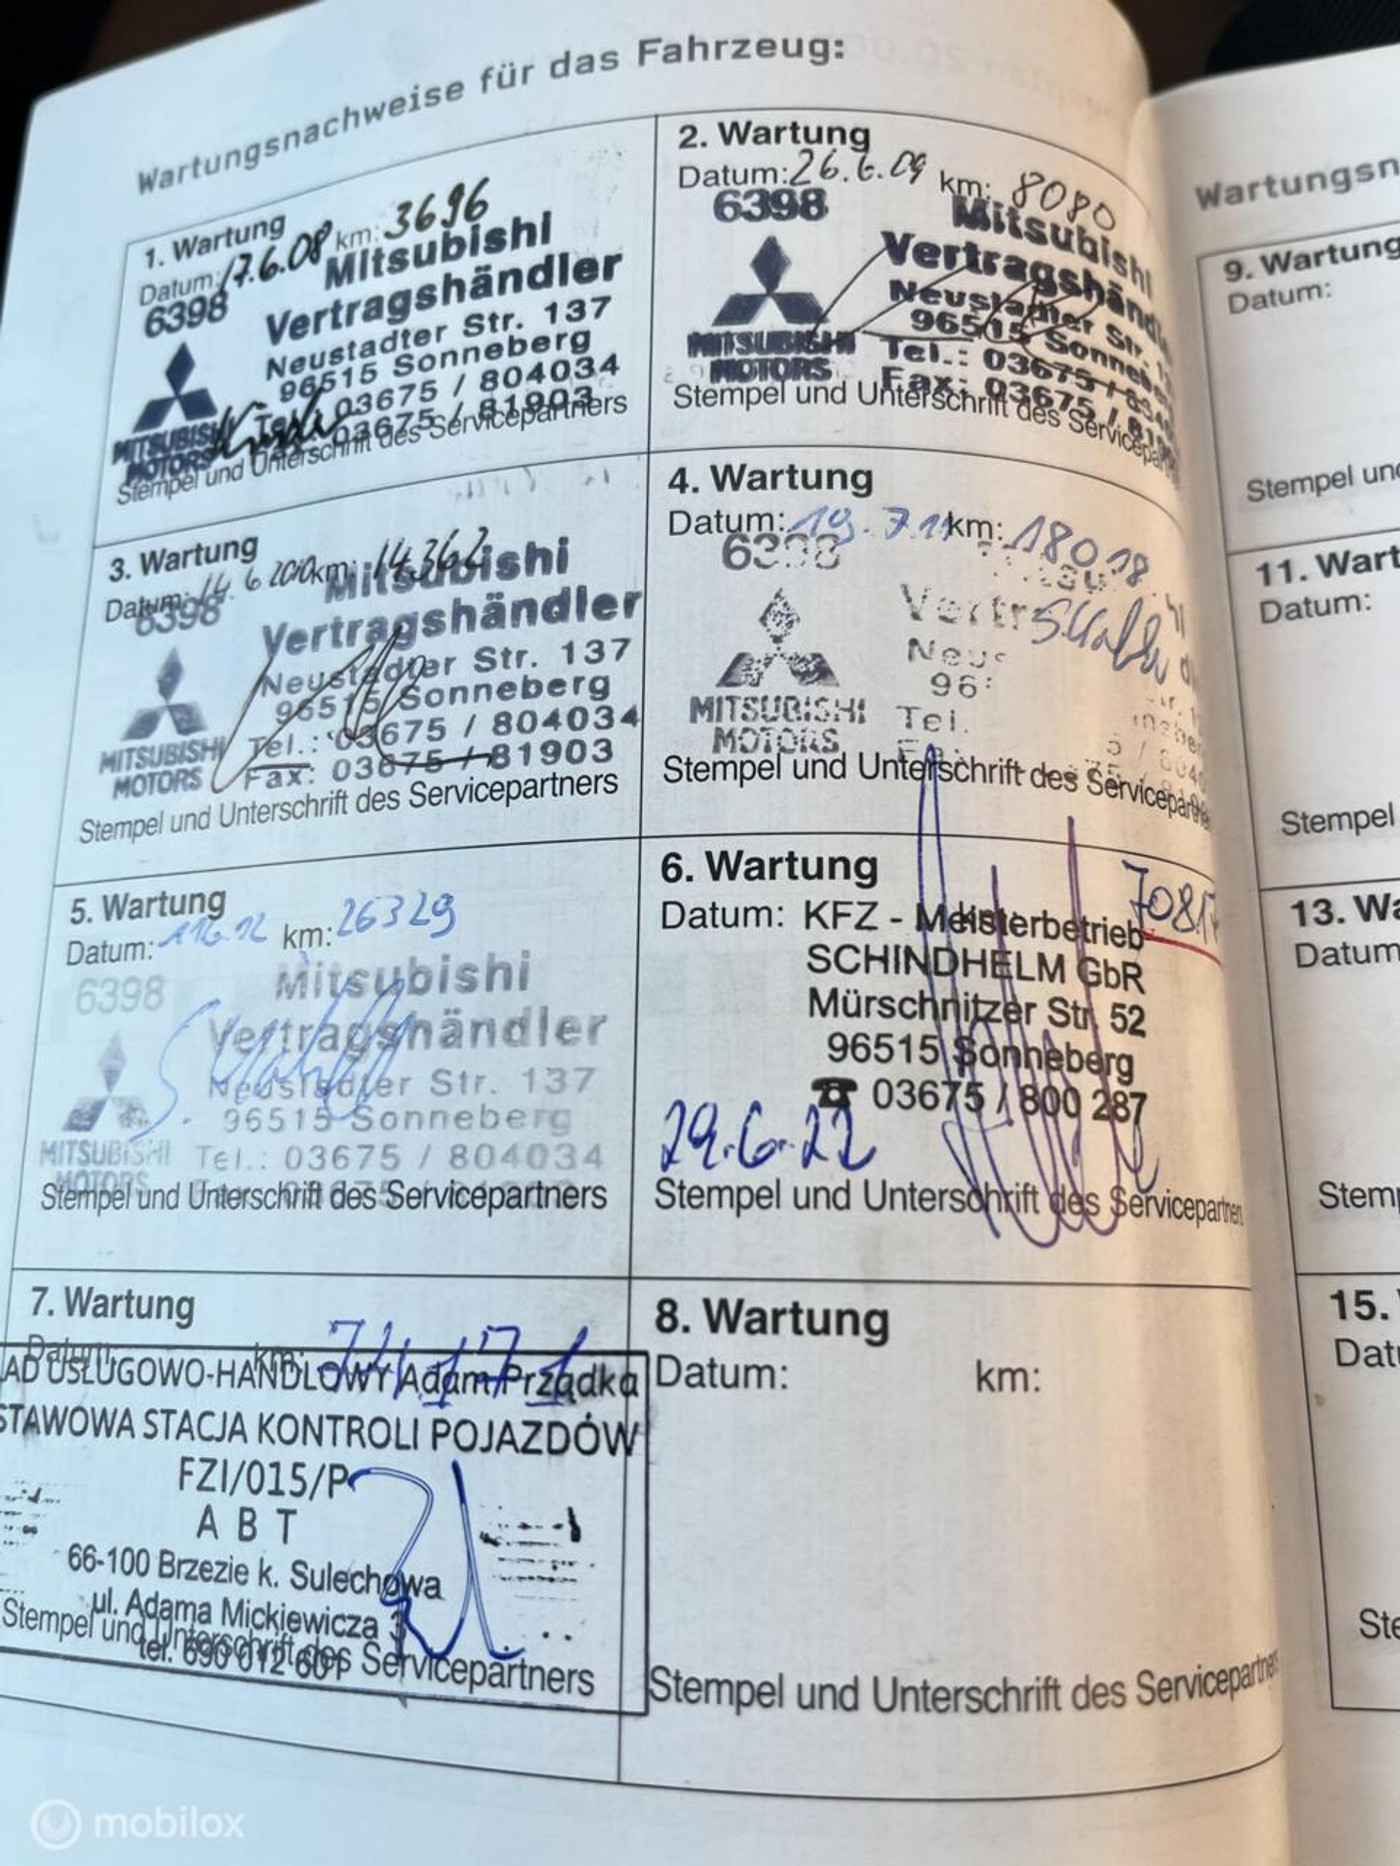 Wartungsnachweise für das Fahrzeug:
1. Wartung
Datum: 17.6.08 km: 3696
6398
Mitsubishi
Vertragshändler
Neustadter Str. 137
96515 Sonneberg
Tel.: 03675 / 804034
Fax: 03675 / 81903
MITSUBISHI
MOTORS
Stempel und Unterschrift des Servicepartners
2. Wartung
Datum: 26.6.09 km: 8080
6398
Mitsubishi
Vertragshänd
Neustadter Str.
96515 Sonnebe
Tel.: 03675 / 804
Fax: 03675 / 819
MITSUBISHI
MOTORS
Stempel und Unterschrift des Servicepa
3. Wartung
Datum: 14.6.2010 km: 14362
6398
Mitsubishi
Vertragshändler
Neustadter Str. 137
96515 Sonneberg
Tel.: 03675 / 804034
Fax: 03675 / 81903
MITSUBISHI
MOTORS
Stempel und Unterschrift des Servicepartners
4. Wartung
Datum: 19.7.11 km: 18018
6398
Vertr
Neus
96
Tel.
MITSUBISHI
MOTORS
Stempel und Unterschrift des Servicepartne
5. Wartung
Datum: km: 26329
6398
Mitsubishi
Vertragshändler
Neustadter Str. 137
96515 Sonneberg
MITSUBISHI
MOTORS
Tel.: 03675 / 804034
Stempel und Unterschrift des Servicepartners
6. Wartung
70817
Datum: KFZ - Meisterbetrieb km:
SCHINDHELM GbR
Mürschnitzer Str. 52
96515 Sonneberg
☎ 03675 / 800 287
29.6.22
Stempel und Unterschrift des Servicepartners
7. Wartung
Datum: km:
AD USŁUGOWO-HANDLOWY Adam Prządka
STAWOWA STACJA KONTROLI POJAZDÓW
FZI/015/P
A B T
66-100 Brzezie k. Sulechowa
ul. Adama Mickiewicza 3
Stempel und Unterschrift des Servicepartners
8. Wartung
Datum: km:
Stempel und Unterschrift des Servicepartners
Wartungsn
9. Wartung
Datum:
Stempel und
11. Wart
Datum:
Stempel
13. Wa
Datum
Stemp
15.
Dat
Ste
mobilox